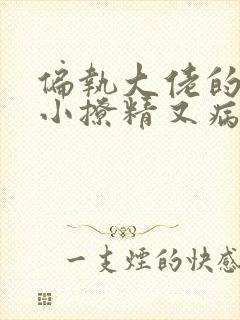 偏執大佬的
小撩精又病
一支煙的快感